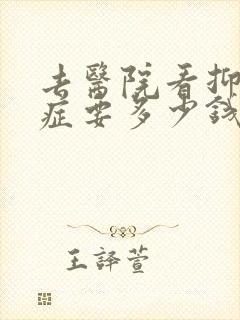 去醫院看抑
症要多少錢
王譯萱